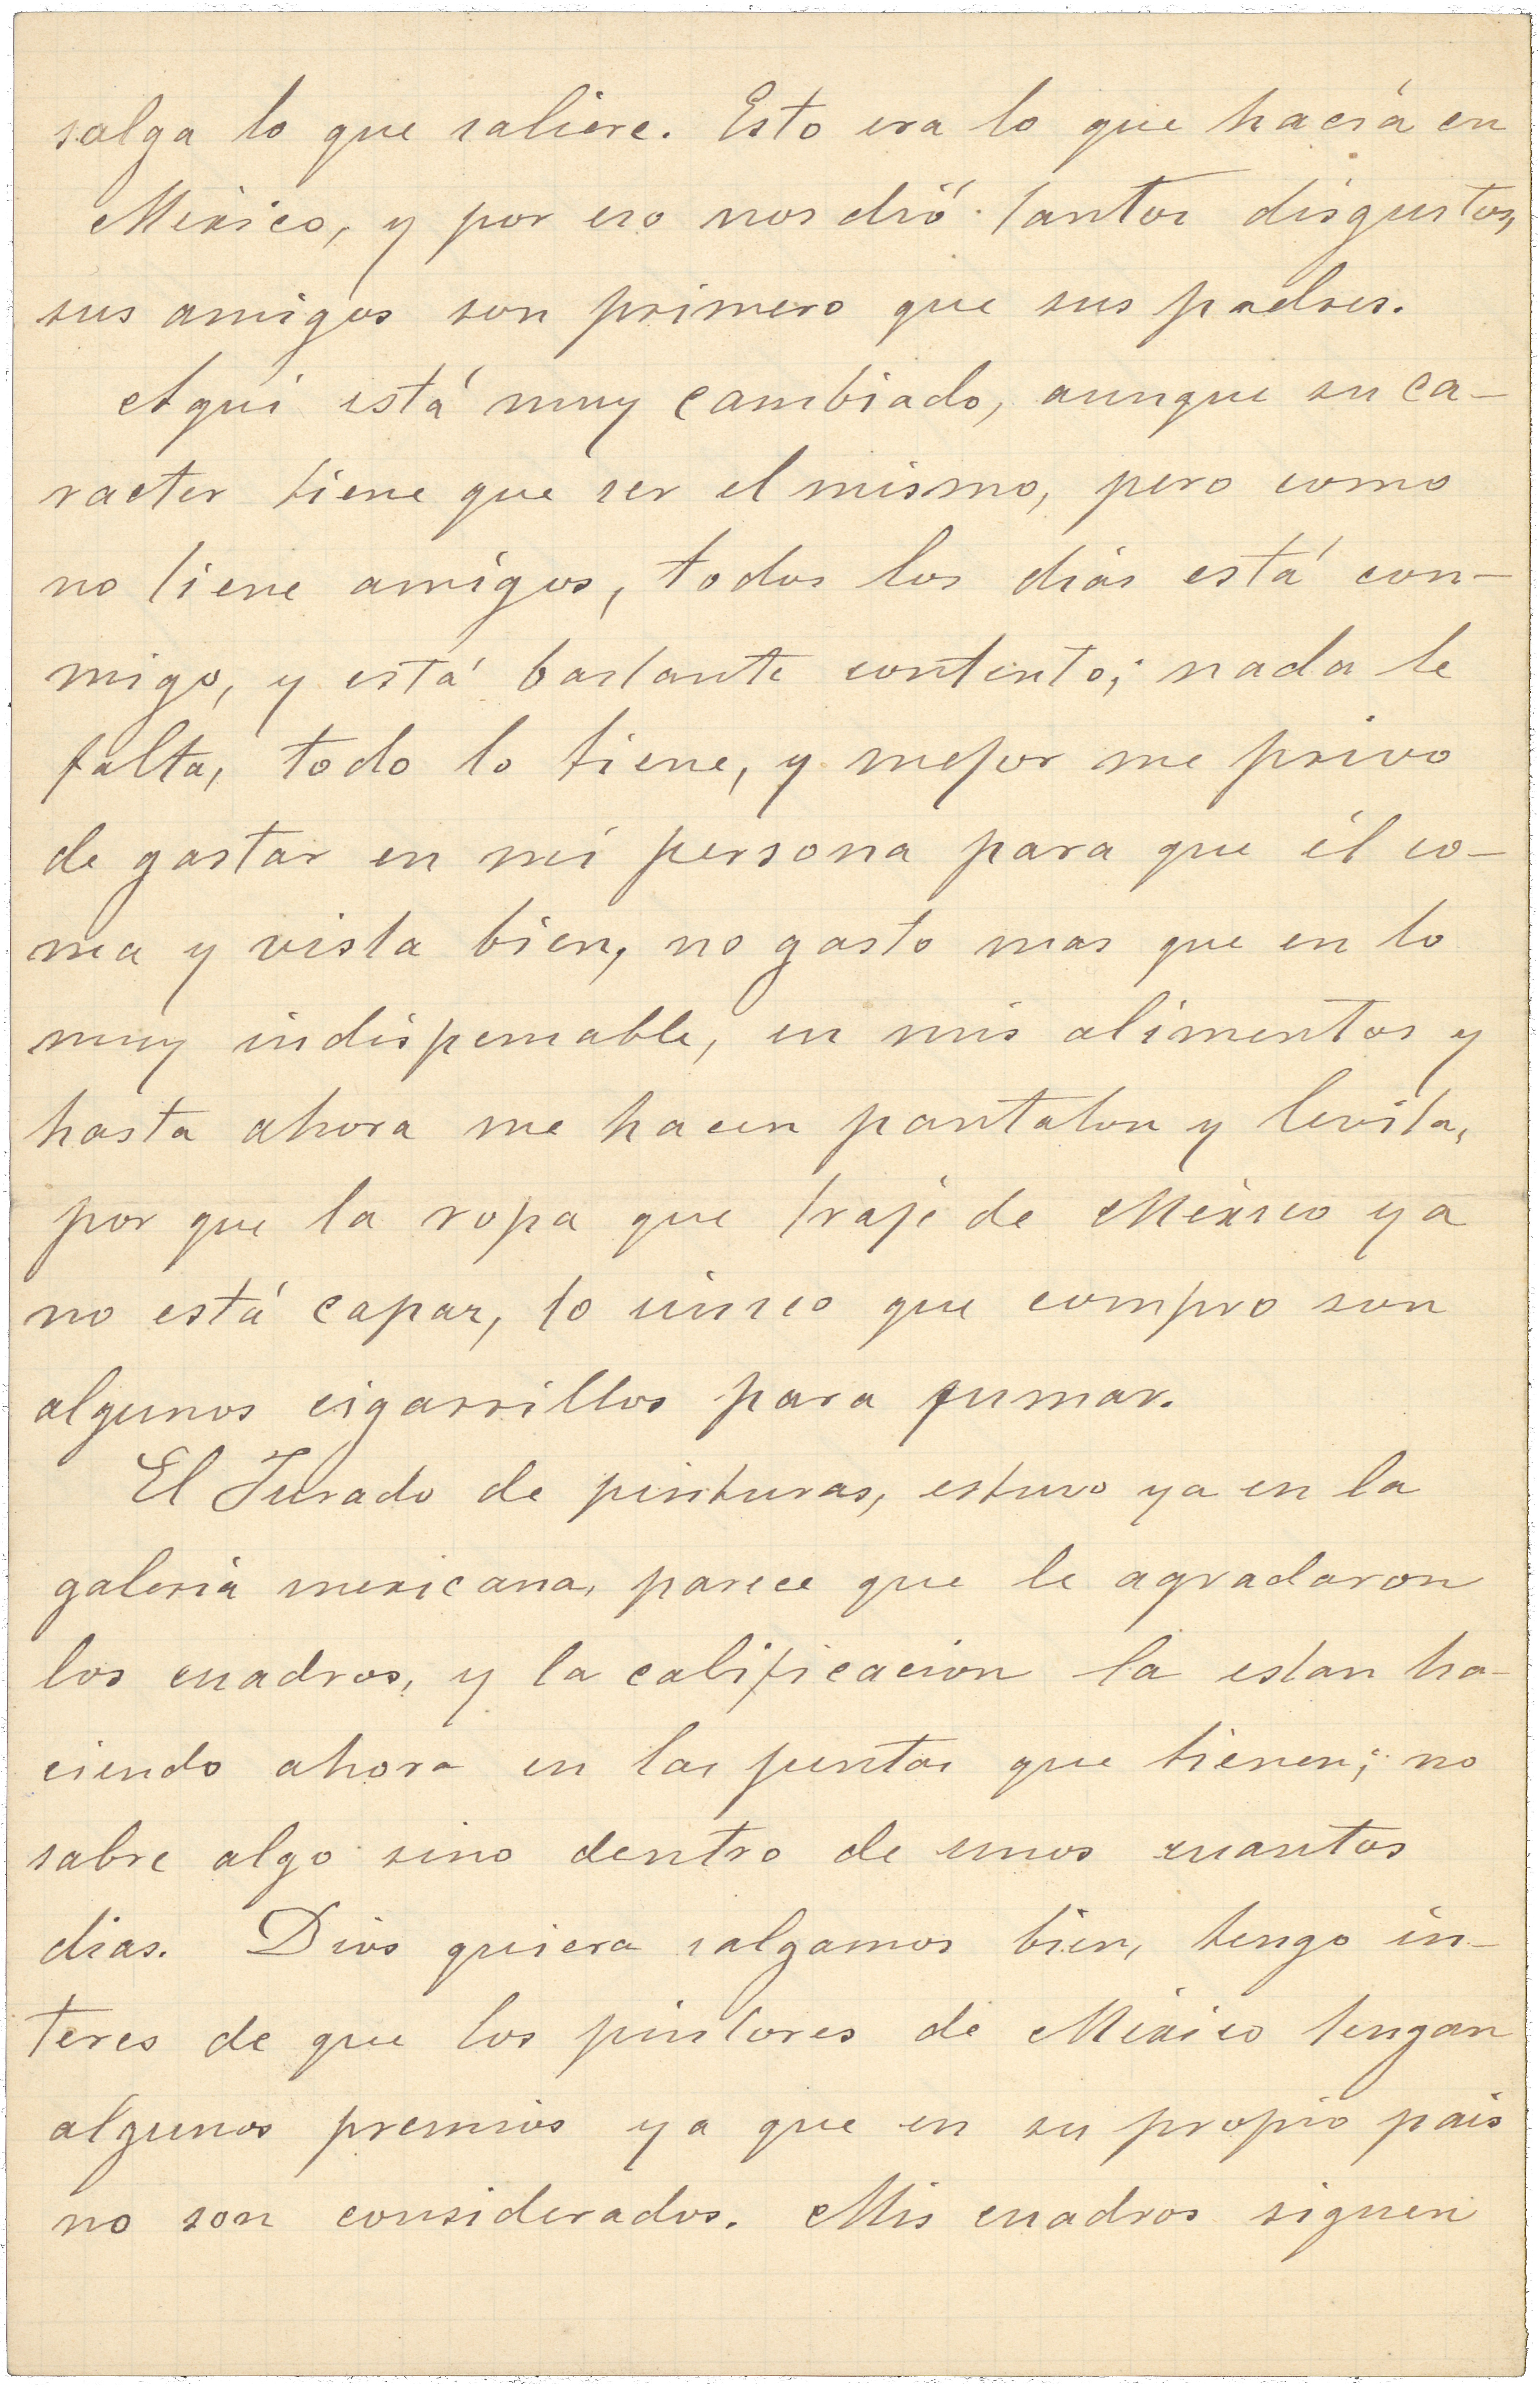 salga lo que saliere. Esto era lo que hacía en
México, y por eso nos dió tantos disgustos,
sus amigos son primero que sus padres.
Aquí está muy cambiado, aunque su ca-
racter tiene que ser el mismo, pero como
no tiene amigos, todos los días está con-
migo, y está bastante contento; nada le
falta, todo lo tiene, y mejor me privo
de gastar en mi persona para que él co-
ma y vista bien, no gasto mas que en lo
muy indispensable, en mis alimentos y
hasta ahora me hacen pantalon y levita,
por que la ropa que traje de México ya
no está capaz, lo único que compro son
algunos cigarrillos para fumar.
El Jurado de pinturas, estuvo ya en la
galería mexicana, parece que le agradaron
los cuadros, y la calificacion la estan ha-
ciendo ahora en las juntas que tienen; no
sabre algo sino dentro de unos cuantos
dias. Dios quiera salgamos bien, tengo in-
teres de que los pintores de México tengan
algunos premios ya que en su propio pais
no son considerados. Mis cuadros siguen